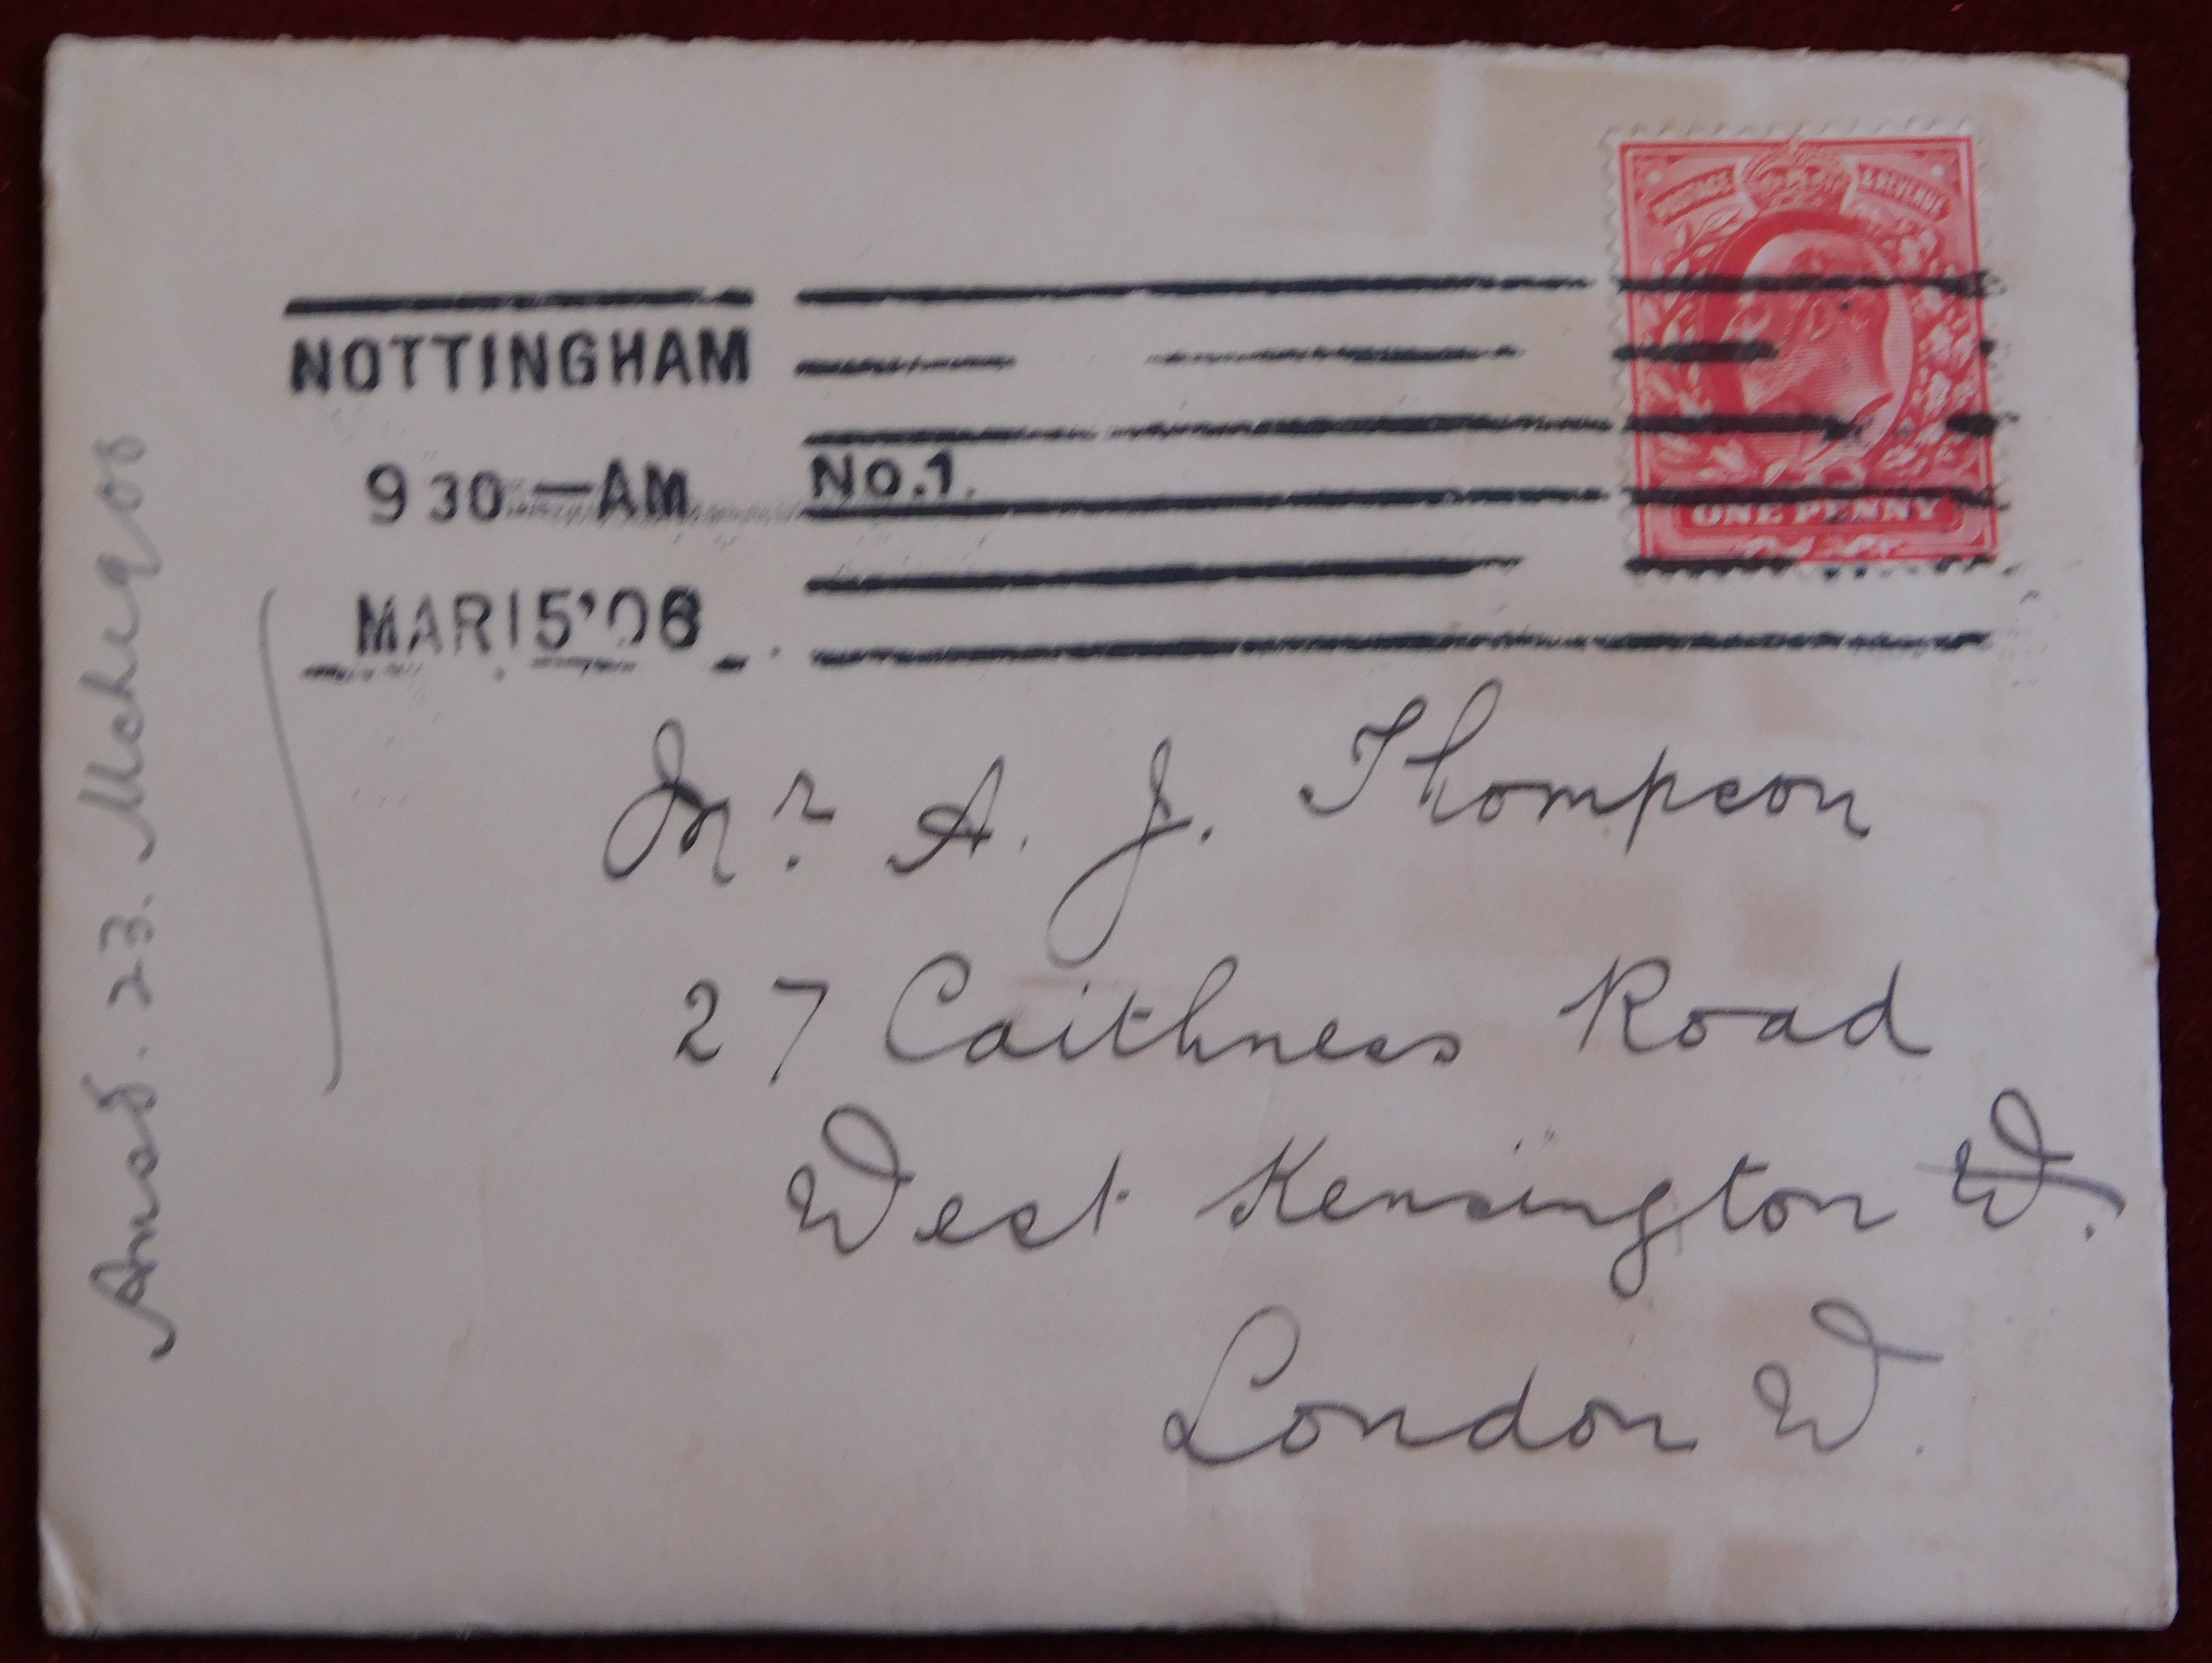 POSTAGE & REVENUE
ONE PENNY
NOTTINGHAM
9 30—AM
No.1.
MAR 15 '06
Mr. A. J. Thompson
27 Caithness Road
West Kensington W.
London W.
Ansd. 23.